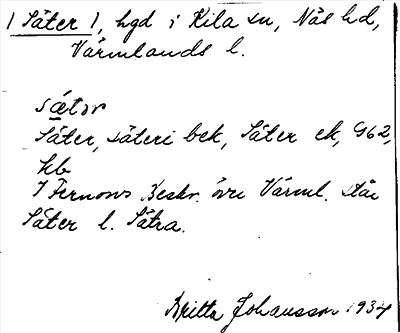 1 Säter 1, hgd i Kila sn, Näs hd,
Värmlands l.
sǽtər
Säter, säteri bek, Säter ek, G62,
kb
I Fernows Beskr. övr Värml. står
Säter l. Sätra.
Britta Johansson 1934